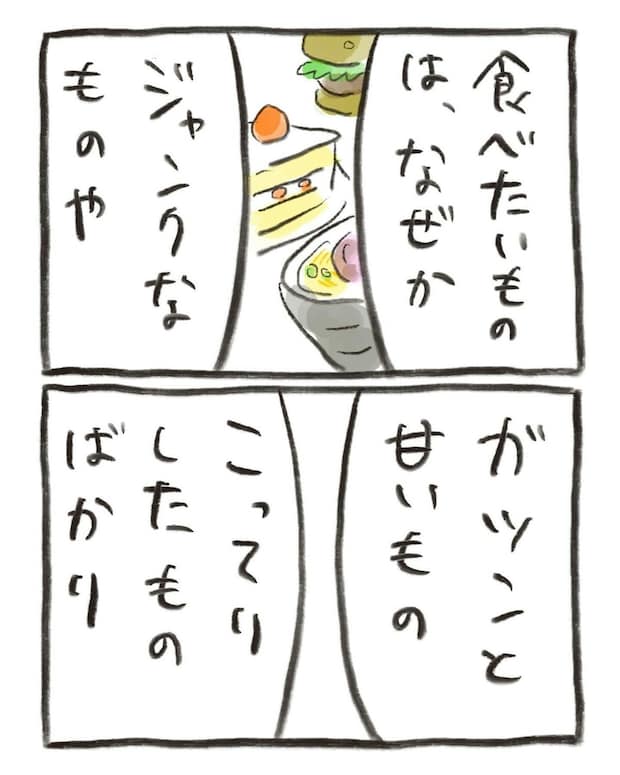 食べたいもの
は、なぜか
ジャンクな
ものや
ガツンと
甘いもの
こってり
したもの
ばかり